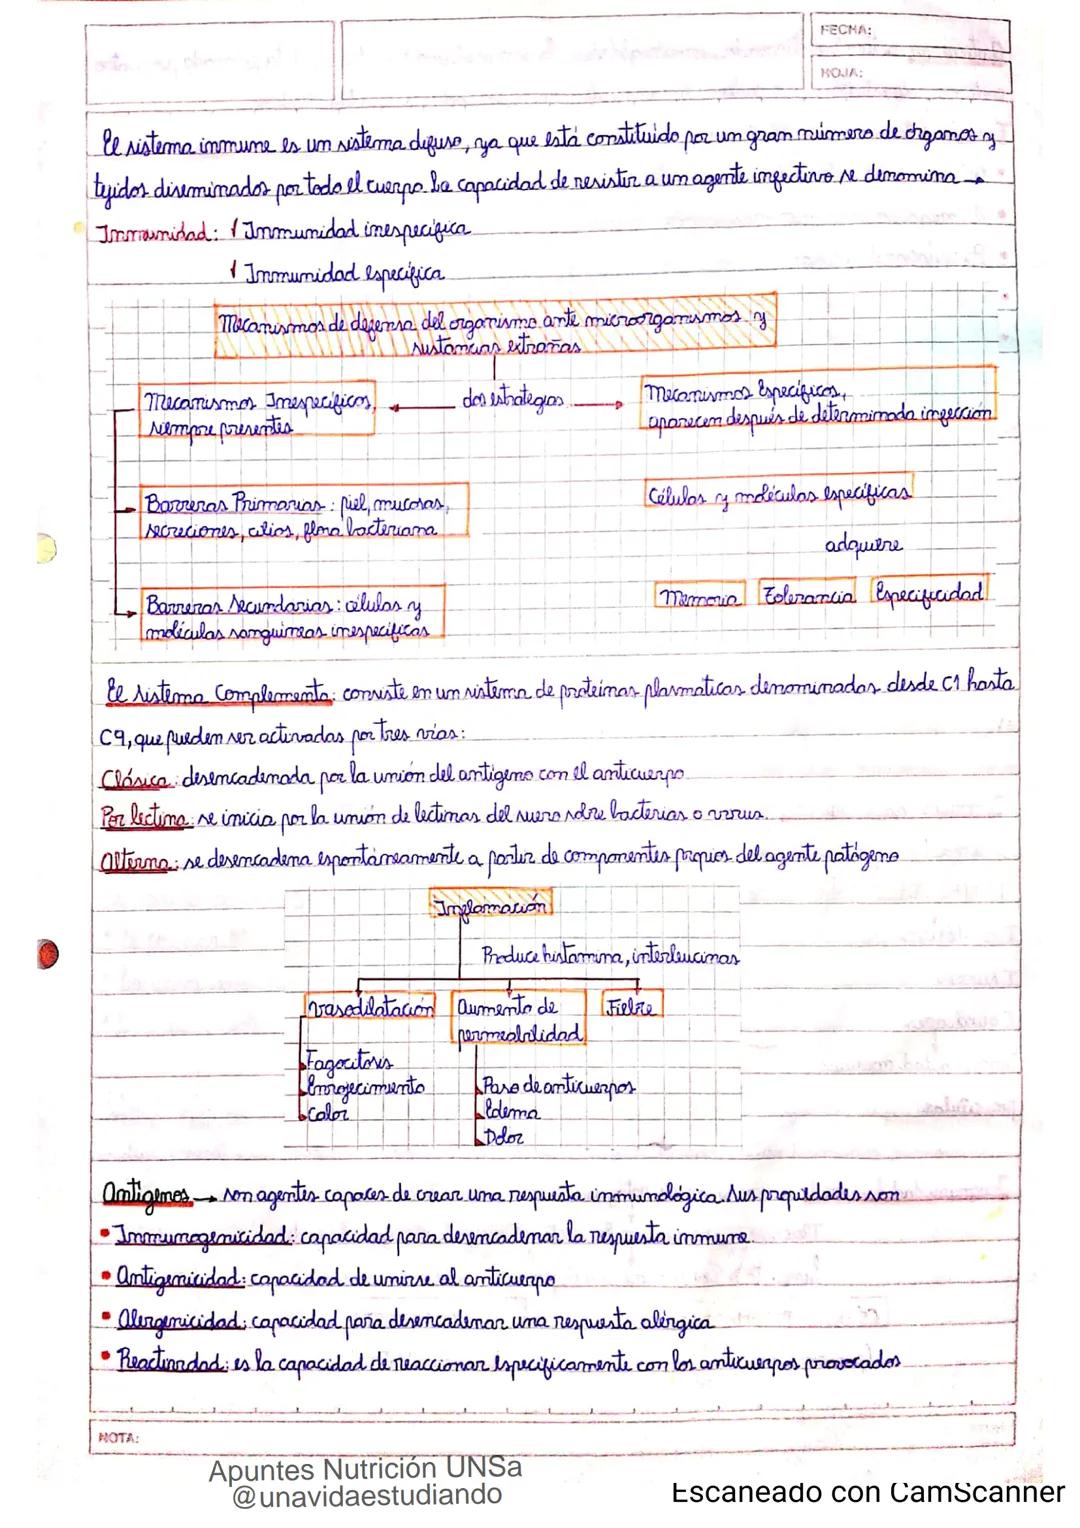 FECHA:
HOJA:
El sistema inmune es un sistema difuso, ya que está constituido por un gran número de órganos y
tejidos diseminados por todo el cuerpo. La capacidad de resistir a un agente infectivo se denomina →
Inmunidad: √ Inmunidad inespecífica
√ Inmunidad específica
Mecanismos de defensa del organismo ante microorganismos y
sustancias extrañas
dos estrategias
Mecanismos Inespecíficos,
siempre presentes
Mecanismos Específicos,
aparecen después de determinada infección
Barreras Primarias: piel, mucosas,
secreciones, cilios, flora bacteriana
Células y moléculas específicas
adquiere
Barreras Secundarias: células y
moléculas sanguíneas inespecíficas
Memoria Tolerancia Especificidad
El Sistema Complemento: consiste en un sistema de proteínas plasmáticas denominadas desde C1 hasta
C9, que pueden ser activadas por tres vías:
Clásica: desencadenada por la unión del antígeno con el anticuerpo.
Por lectina: se inicia por la unión de lectinas del suero sobre bacterias o virus.
Alterna: se desencadena espontáneamente a partir de componentes propios del agente patógeno
Inflamación
Produce histamina, interleucinas
Vasodilatación
Aumento de
permeabilidad
Fiebre
Fagocitosis
Enrojecimiento
Calor
Paso de anticuerpos
Edema
Dolor
Antígenos → son agentes capaces de crear una respuesta inmunológica. Sus propiedades son
• Inmunogenicidad: capacidad para desencadenar la respuesta inmune.
• Antigenicidad: capacidad de unirse al anticuerpo
• Alergenicidad: capacidad para desencadenar una respuesta alérgica
• Reactividad: es la capacidad de reaccionar específicamente con los anticuerpos provocados
NOTA:
Apuntes Nutrición UNSa
@unavidaestudiando
Escaneado con CamScanner